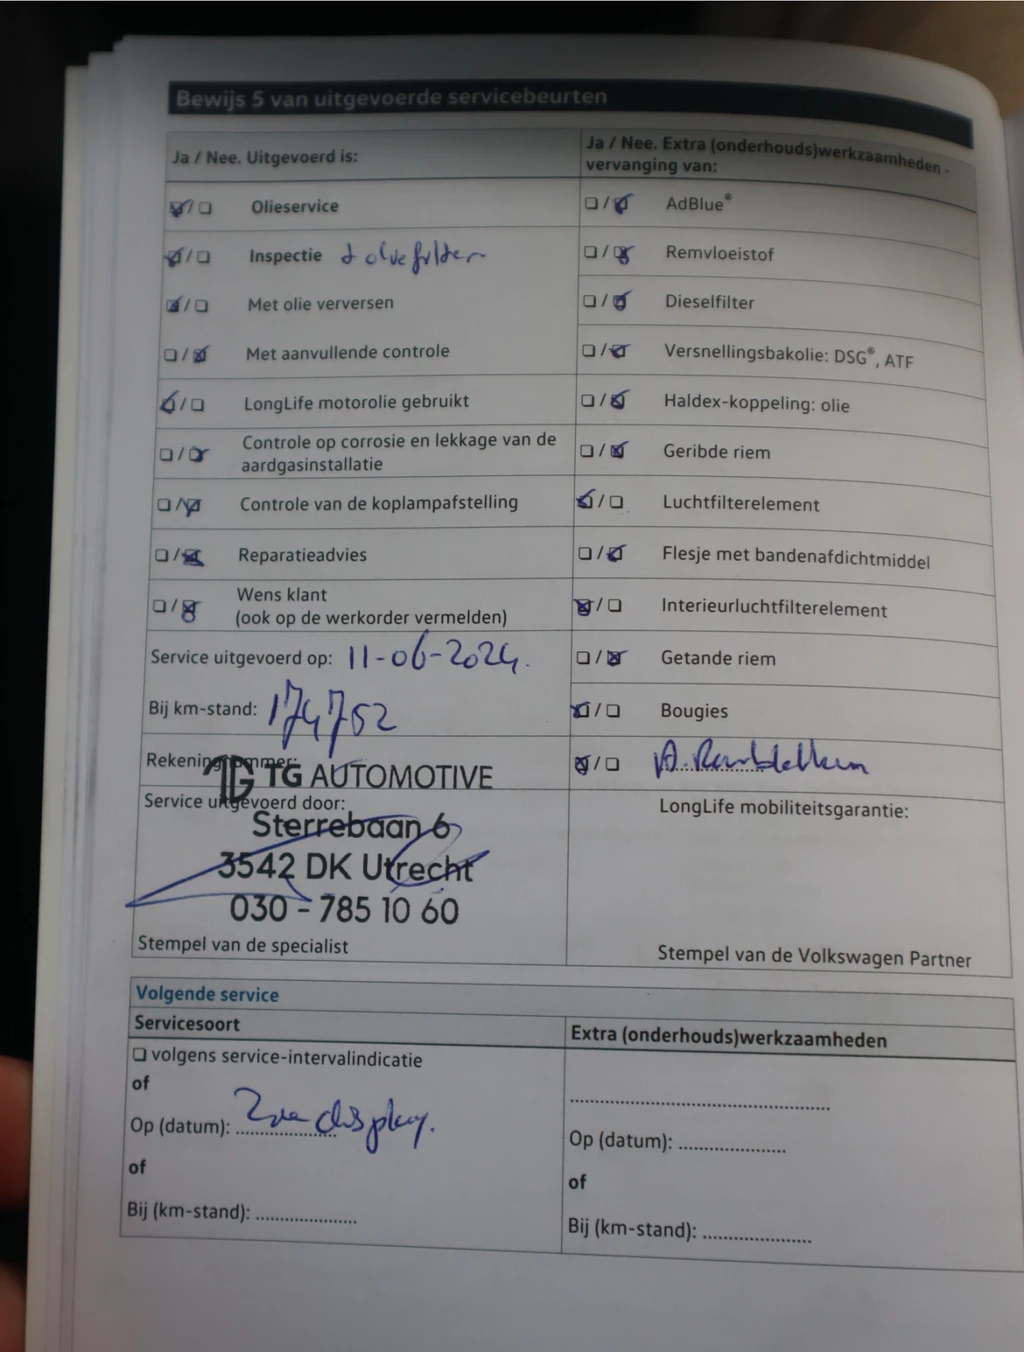 Bewijs 5 van uitgevoerde servicebeurten
Ja / Nee. Uitgevoerd is:
☑/☐ Olieservice
☑/☐ Inspectie + oliefilter
☑/☐ Met olie verversen
☐/☑ Met aanvullende controle
☑/☐ LongLife motorolie gebruikt
☐/☑ Controle op corrosie en lekkage van de
aardgasinstallatie
☐/☑ Controle van de koplampafstelling
☐/☑ Reparatieadvies
☐/☑ Wens klant
(ook op de werkorder vermelden)
Service uitgevoerd op: 11-06-2024.
Bij km-stand: 174752
Rekeningnummer:
TG TG AUTOMOTIVE
Service uitgevoerd door:
Sterrebaan 6
3542 DK Utrecht
030 - 785 10 60
Stempel van de specialist
Ja / Nee. Extra (onderhouds)werkzaamheden -
vervanging van:
☐/☑ AdBlue®
☐/☑ Remvloeistof
☐/☑ Dieselfilter
☐/☑ Versnellingsbakolie: DSG®, ATF
☐/☑ Haldex-koppeling: olie
☐/☑ Geribde riem
☑/☐ Luchtfilterelement
☐/☑ Flesje met bandenafdichtmiddel
☑/☐ Interieurluchtfilterelement
☐/☑ Getande riem
☑/☐ Bougies
☑/☐
LongLife mobiliteitsgarantie:
Stempel van de Volkswagen Partner
Volgende service
Servicesoort
☐ volgens service-intervalindicatie
of
Op (datum): Zie display.
of
Bij (km-stand): ....................
Extra (onderhouds)werkzaamheden
....................
Op (datum): ....................
of
Bij (km-stand): ....................